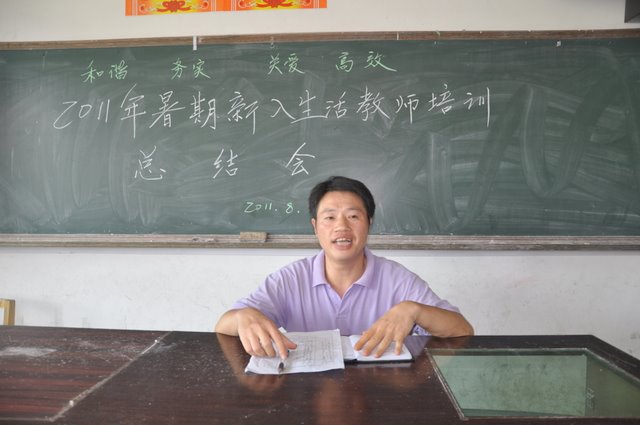 和谐 务实 关爱 高效
2011年暑期新入生活教师培训
总结会
2011.8.